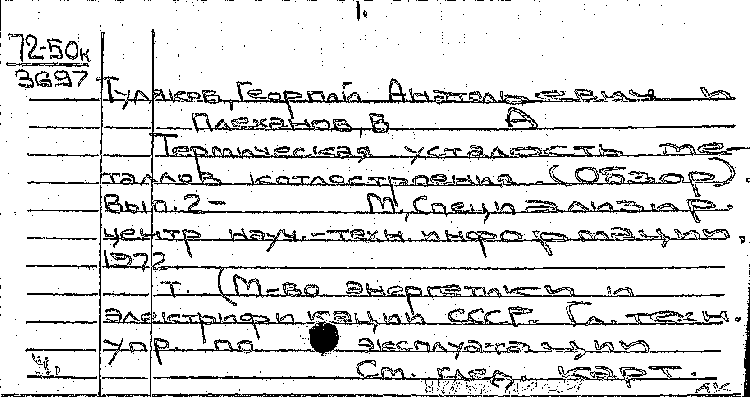 1.
72-50к
3697
Туляков, Георгий Анатольевич и
Плеханов, В А
Термическая усталость ме-
таллов котлостроения. (Обзор).
Вып. 2- М., Специализир.
центр науч.-техн. информации,
1972
т. (М-во энергетики и
электрификации СССР. Гл. техн.
упр. по эксплуатации
Ч.
См. след. карт.